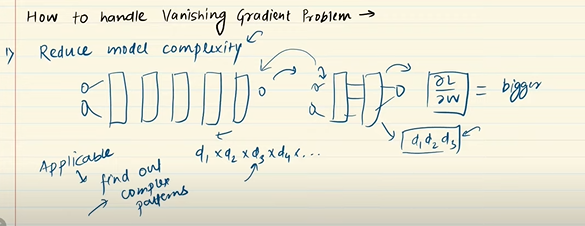 How to handle Vanishing Gradient Problem →
1) Reduce model complexity
∂L/∂W = bigger
d₁ d₂ d₃
d₁ × d₂ × d₃ × d₄ × . . .
Applicable
find out
complex
patterns